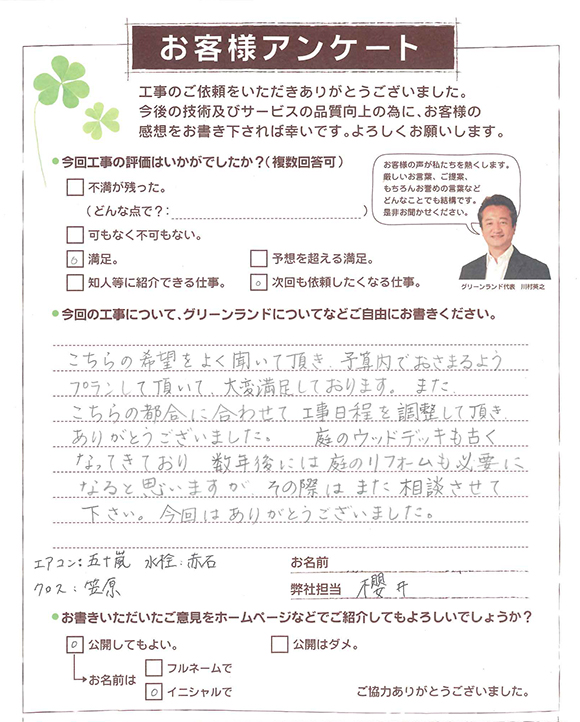 お客様アンケート
工事のご依頼をいただきありがとうございました。
今後の技術及びサービスの品質向上の為に、お客様の
感想をお書き下されば幸いです。よろしくお願いします。
●今回工事の評価はいかがでしたか?(複数回答可)
お客様の声が私たちを熱くします。
厳しいお言葉、ご提案、
もちろんお誉めの言葉など
どんなことでも結構です。
是非お聞かせください。
グリーンランド代表 川村英之
不満が残った。
(どんな点で?: )
可もなく不可もない。
○ 満足。 予想を超える満足。
知人等に紹介できる仕事。 ○ 次回も依頼したくなる仕事。
●今回の工事について、グリーンランドについてなどご自由にお書きください。
こちらの希望をよく聞いて頂き、予算内でおさまるよう
プランして頂いて、大変満足しております。また、
こちらの都合に合わせて工事日程を調整して頂き、
ありがとうございました。 庭のウッドデッキも古く
なってきており 数年後には庭のリフォームも必要に
なると思いますが その際は また相談させて
下さい。今回はありがとうございました。
エアコン:五十嵐 水栓:赤石 お名前
クロス:笠原 弊社担当 櫻井
●お書きいただいたご意見をホームページなどでご紹介してもよろしいでしょうか?
○ 公開してもよい。 公開はダメ。
お名前は フルネームで
○ イニシャルで ご協力ありがとうございました。